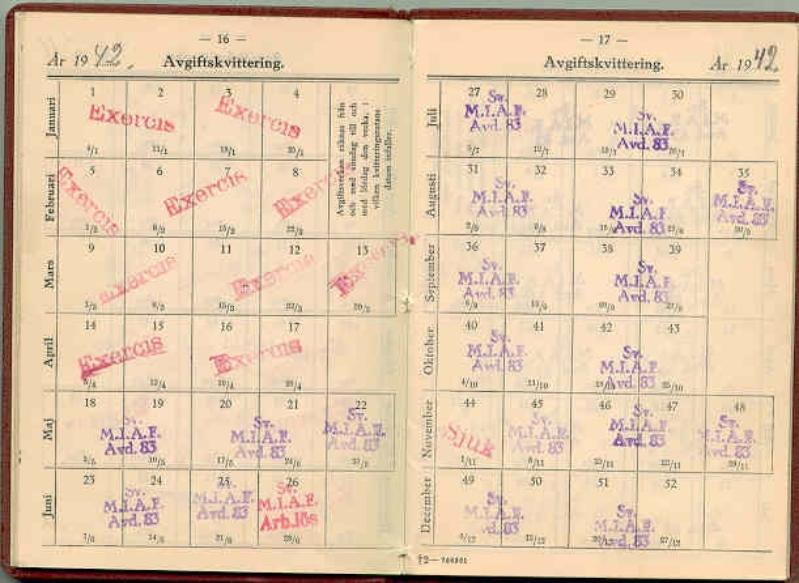 — 16 —
År 1942. Avgiftskvittering.
Januari
1 2 3 4
Exercis Exercis
4/1 11/1 18/1 25/1
Avgiftsveckan räknas från
och med söndag till och
med lördag den vecka, i
vilken kvitteringsrutans
datum infaller.
Februari
5 6 7 8
Exercis Exercis Exercis
1/2 8/2 15/2 22/2
Mars
9 10 11 12 13
Exercis Exercis Exercis
1/3 8/3 15/3 22/3 29/3
April
14 15 16 17
Exercis Exercis
5/4 12/4 19/4 26/4
Maj
18 19 20 21 22
Sv. Sv. Sv.
M.I.A.F. M.I.A.F. M.I.A.F.
Avd. 83 Avd. 83 Avd. 83
3/5 10/5 17/5 24/5 31/5
Juni
23 24 25 26
Sv. Sv. Sv.
M.I.A.F. M.I.A.F. M.I.A.F.
Avd. 83 Avd. 83 Arb.lös
7/6 14/6 21/6 28/6
— 17 —
Avgiftskvittering. År 1942.
Juli
27 28 29 30
Sv. Sv.
M.I.A.F. M.I.A.F.
Avd. 83 Avd. 83
5/7 12/7 19/7 26/7
Augusti
31 32 33 34 35
Sv. Sv. Sv.
M.I.A.F. M.I.A.F. M.I.A.F.
Avd. 83 Avd. 83 Avd. 83
2/8 9/8 23/8 30/8
September
36 37 38 39
Sv. Sv.
M.I.A.F. M.I.A.F.
Avd. 83 Avd. 83
6/9 13/9 20/9 27/9
Oktober
40 41 42 43
Sv. Sv.
M.I.A.F. M.I.A.F.
Avd. 83 Avd. 83
4/10 11/10 25/10
November
44 45 46 47 48
Sjuk
Sv. Sv. Sv.
M.I.A.F. M.I.A.F. M.I.A.F.
Avd. 83 Avd. 83 Avd. 83
1/11 8/11 22/11 29/11
December
49 50 51 52
Sv. Sv.
M.I.A.F. M.I.A.F.
vd. 83 Avd. 83
6/12 13/12 20/12 27/12